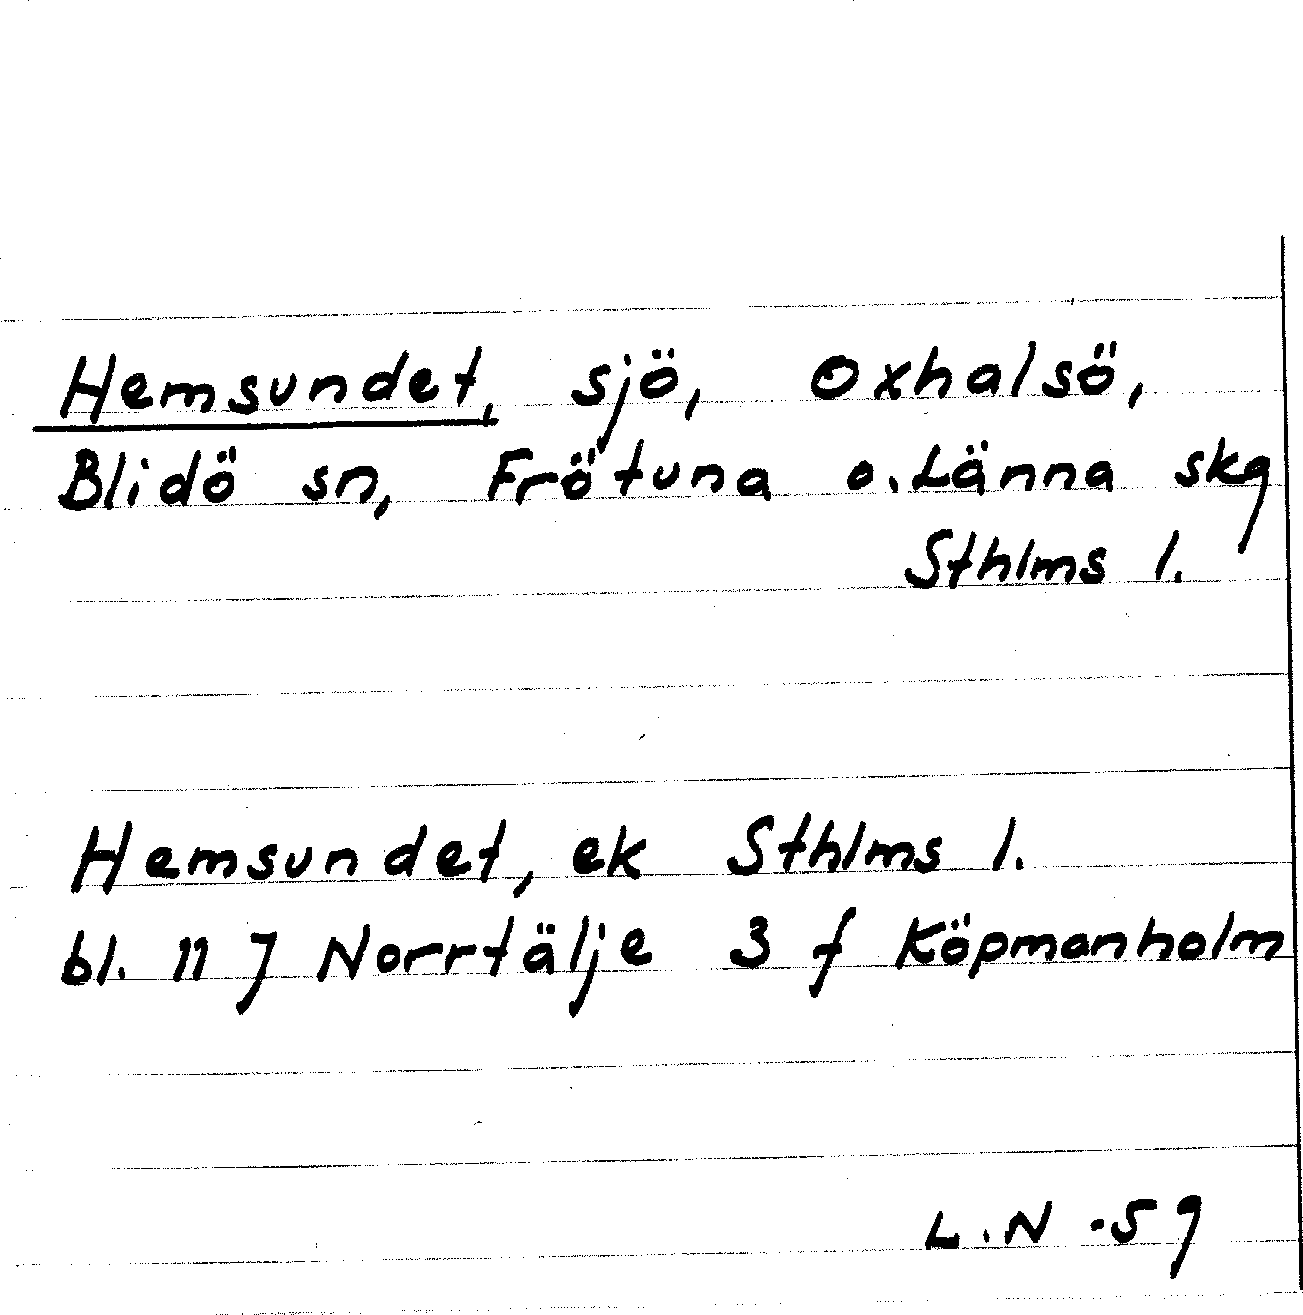 Hemsundet, sjö, Oxhalsö,
Blidö sn, Frötuna o. Länna skg
Sthlms l.
Hemsundet, ek Sthlms l.
bl. 11 J Norrtälje 3 f Köpmanholm
L.N -59